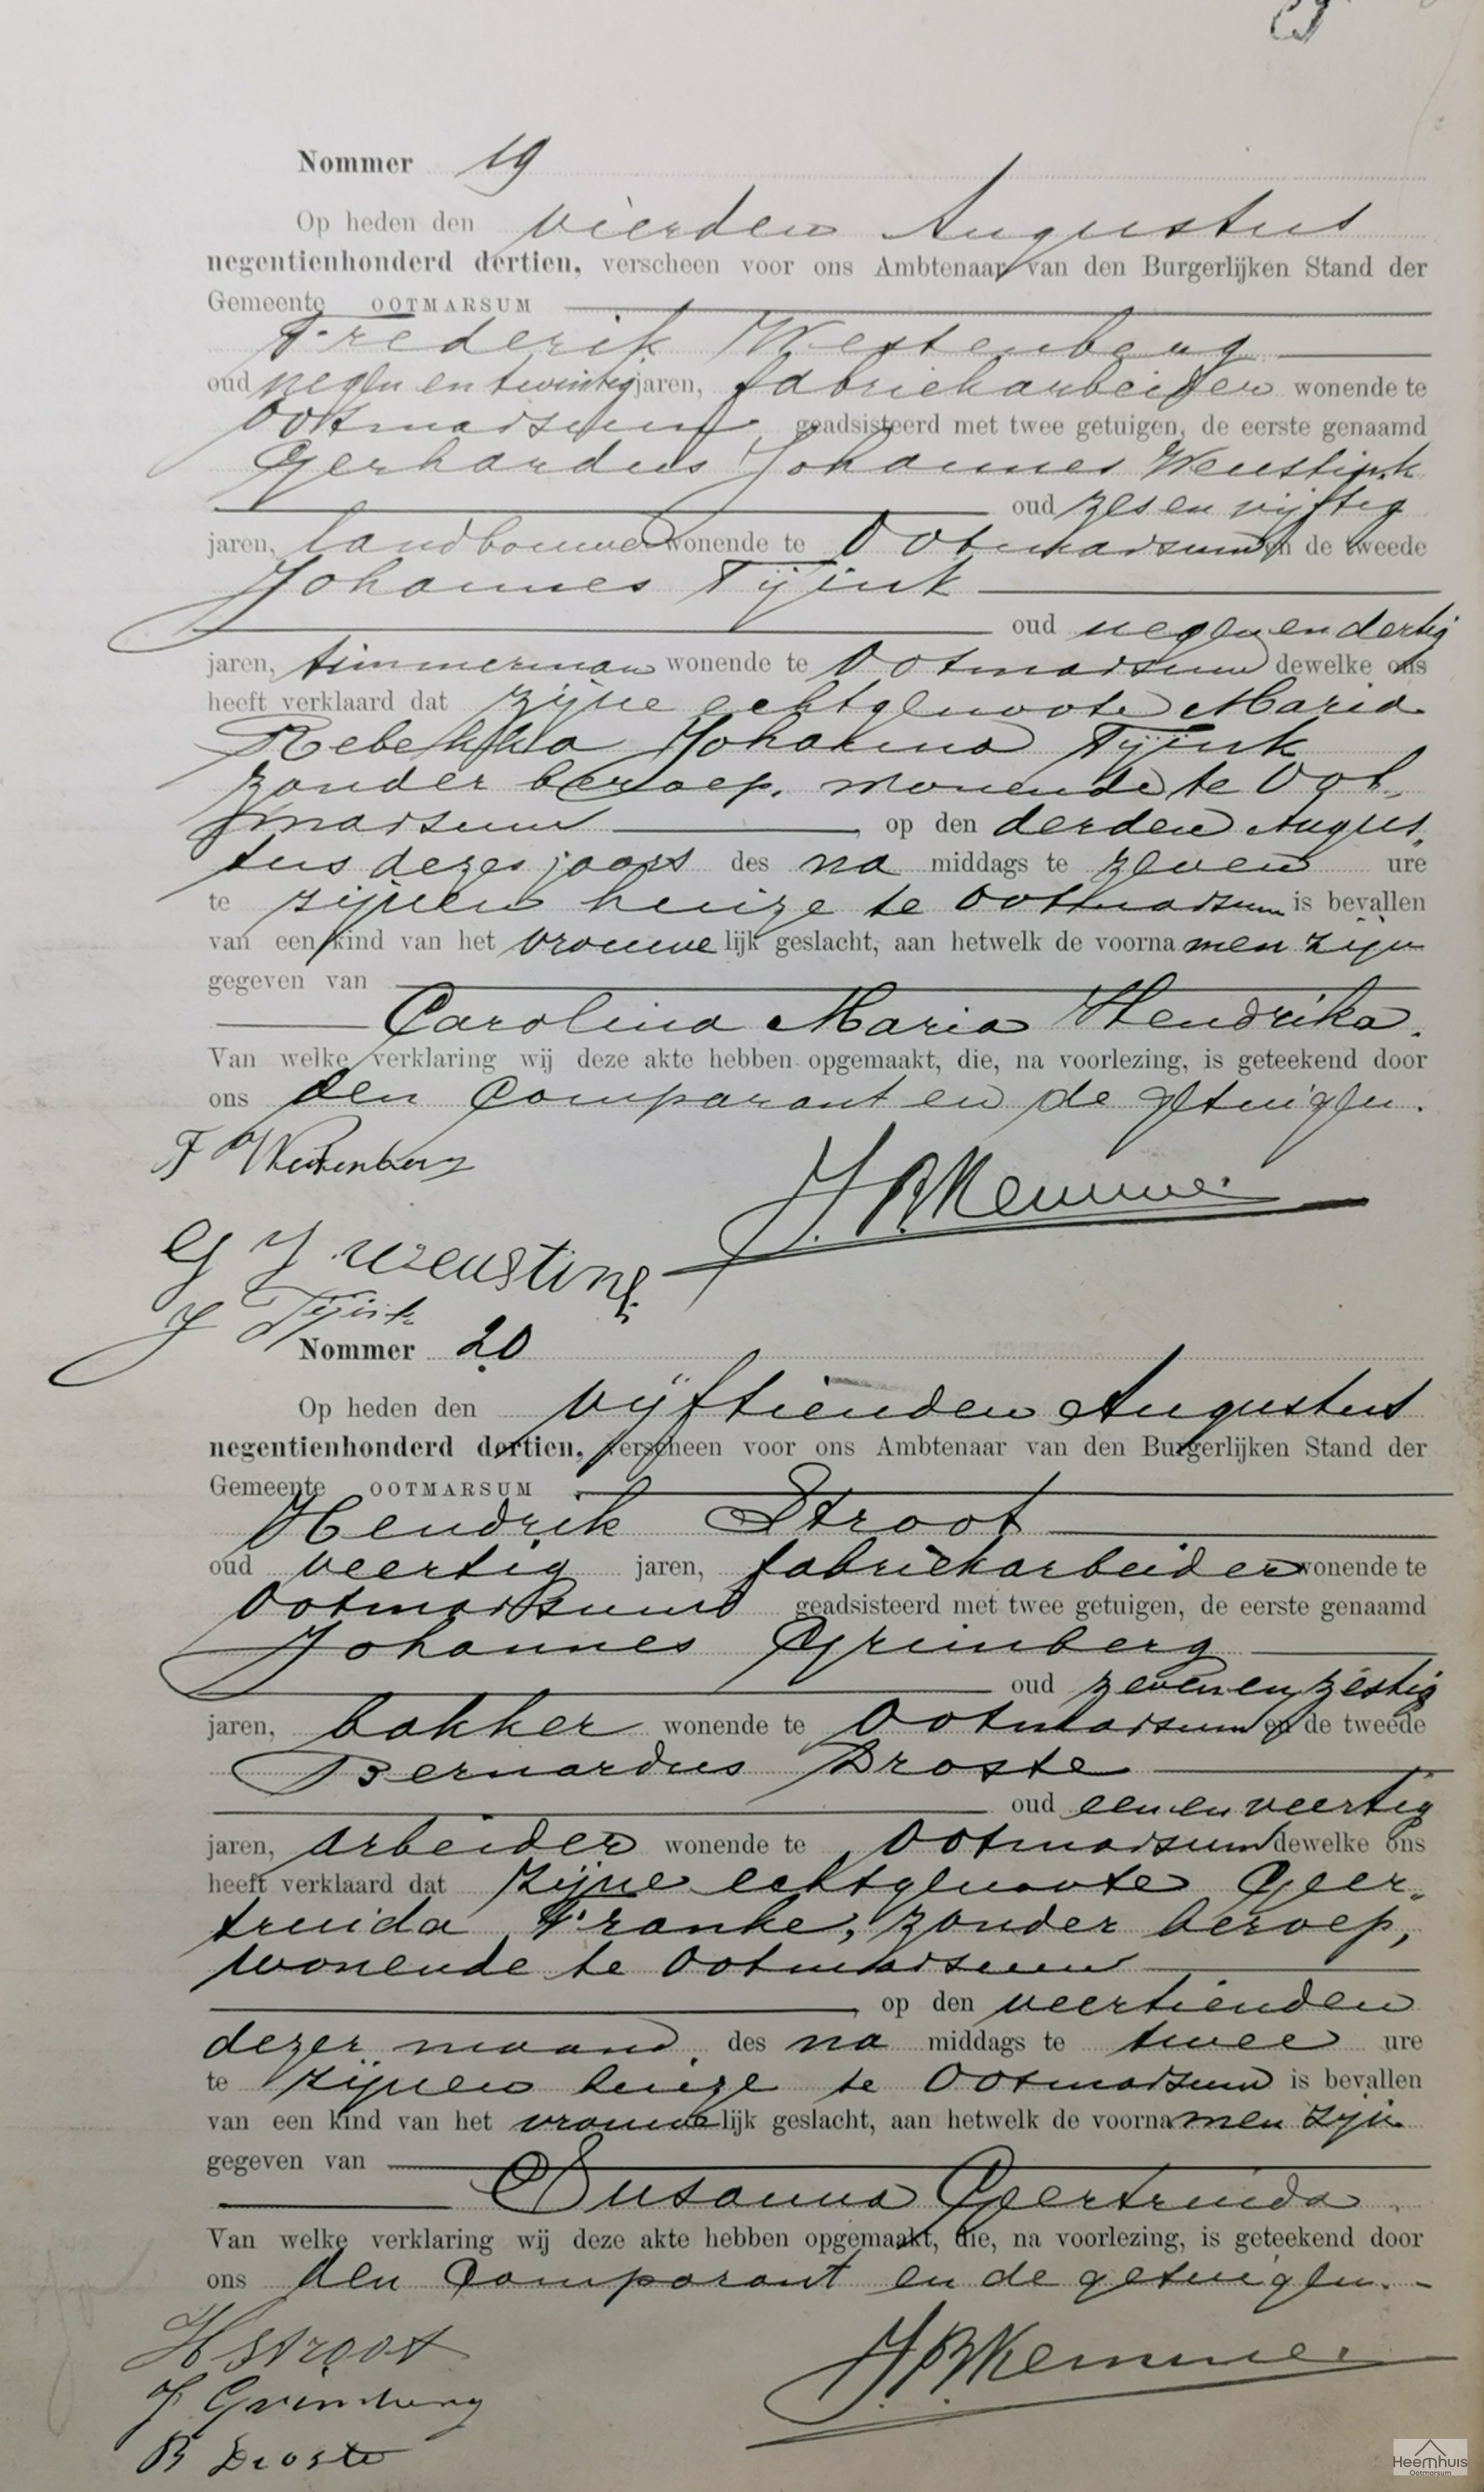 Nommer 19
Op heden den vierden Augustus
negentienhonderd dertien, verscheen voor ons Ambtenaar van den Burgerlijken Stand der
Gemeente OOTMARSUM
Frederik Westenberg
oud negen en twintig jaren, fabriekarbeider wonende te
Ootmarsum geadsisteerd met twee getuigen, de eerste genaamd
Gerhardus Johannes Weustink
oud zes en vijftig
jaren, landbouwer wonende te Ootmarsum en de tweede
Johannes Tijink
oud negen en dertig
jaren, timmerman wonende te Ootmarsum dewelke ons
heeft verklaard dat zijne echtgenoote Maria
Rebekka Johanna Tijink
zonder beroep, wonende te Oot„
marsum, op den derden Augus„
tus dezes jaars des na middags te zeven ure
te zijnen huize te Ootmarsum is bevallen
van een kind van het vrouwelijk geslacht, aan hetwelk de voornamen zijn
gegeven van
Carolina Maria Hendrika.
Van welke verklaring wij deze akte hebben opgemaakt, die, na voorlezing, is geteekend door
ons den Comparant en de getuigen.
F Westenberg
G J Weustink
J Tijink
Nommer 20
Op heden den vijftienden Augustus
negentienhonderd dertien, verscheen voor ons Ambtenaar van den Burgerlijken Stand der
Gemeente OOTMARSUM
Hendrik Stroot
oud veertig jaren, fabriekarbeider wonende te
Ootmarsum geadsisteerd met twee getuigen, de eerste genaamd
Johannes Grimberg
oud zeven en zestig
jaren, bakker wonende te Ootmarsum en de tweede
Bernardus Droste
oud een en veertig
jaren, arbeider wonende te Ootmarsum dewelke ons
heeft verklaard dat zijne echtgenoote Geer„
truida Franke, zonder beroep,
wonende te Ootmarsum
, op den veertienden
dezer maand, des na middags te twee ure
te zijnen huize te Ootmarsum is bevallen
van een kind van het vrouwelijk geslacht, aan hetwelk de voornamen zijn
gegeven van
Susanna Geertruida.
Van welke verklaring wij deze akte hebben opgemaakt, die, na voorlezing, is geteekend door
ons den Comparant en de getuigen.
H Stroot
J Grimberg
B Droste
Heemhuis
Ootmarsum